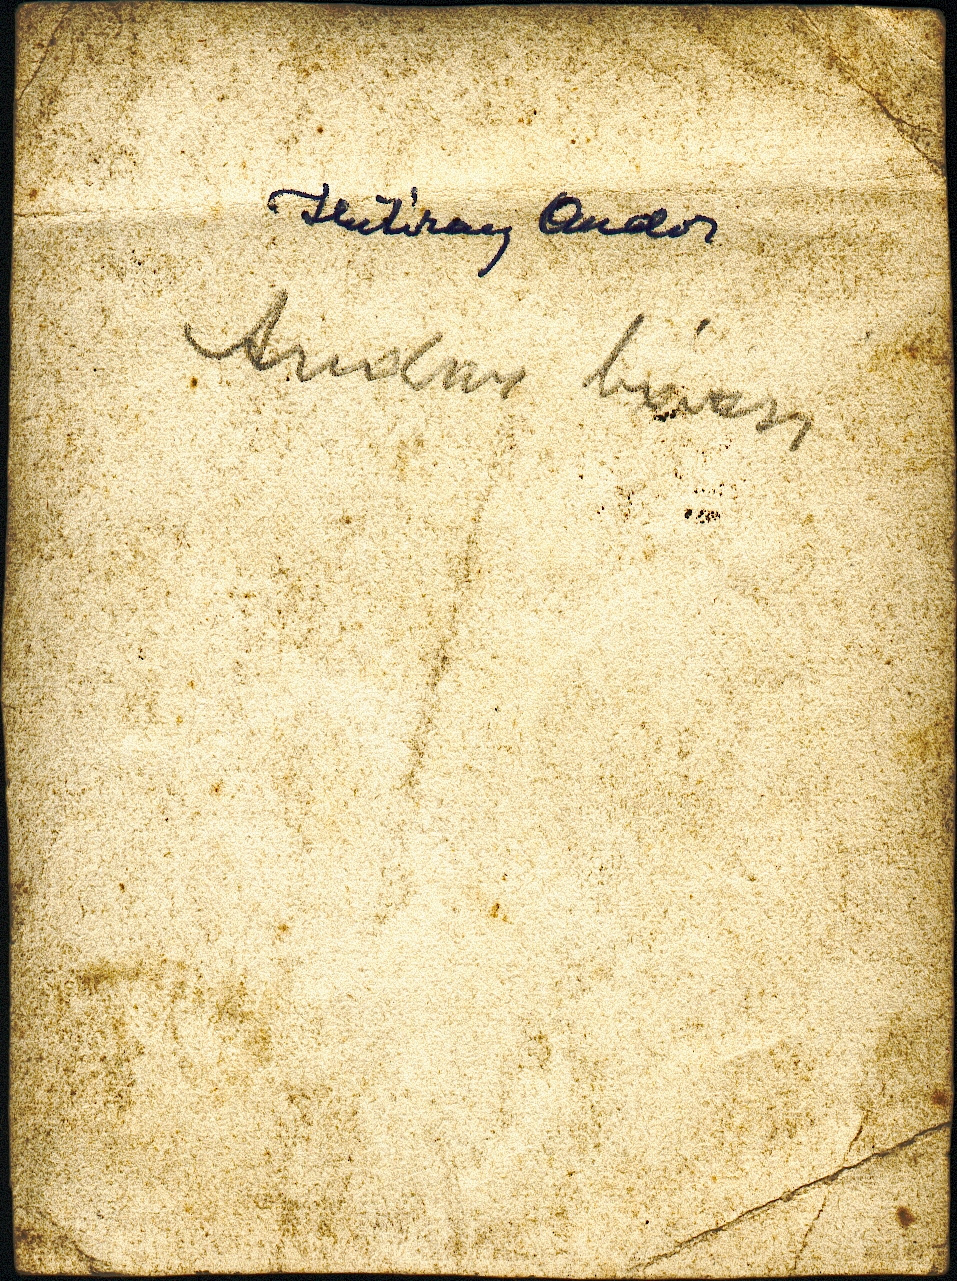 Hutiray Andor
Andor bácsi